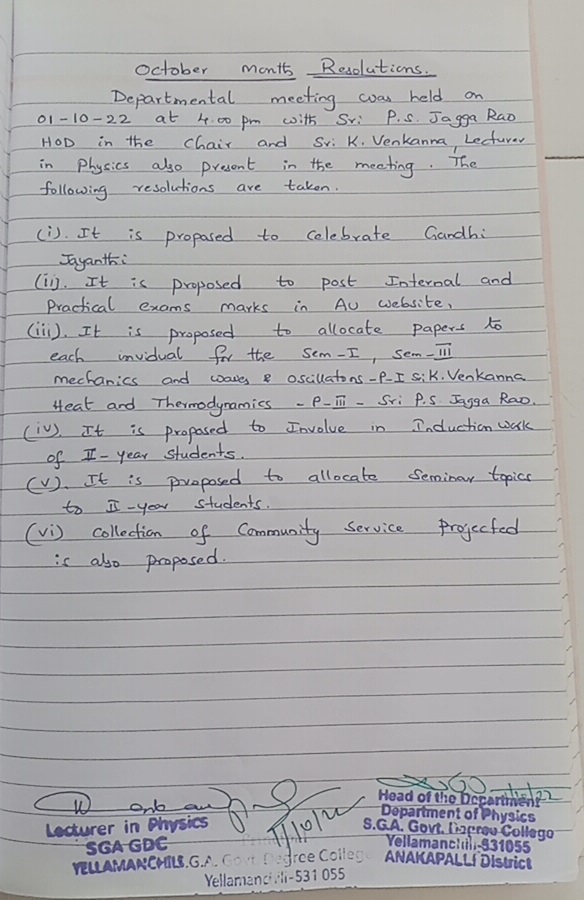 October month Resolutions.
Departmental meeting was held on
01-10-22 at 4.00 pm with Sri P.S. Jagga Rao
HOD in the chair and Sri K. Venkanna, Lecturer
in Physics also present in the meeting. The
following resolutions are taken.
(i). It is proposed to celebrate Gandhi
Jayanthi
(ii). It is proposed to post Internal and
Practical exams marks in AU website,
(iii). It is proposed to allocate papers to
each invidual for the Sem-I, Sem-III
mechanics and waves & oscillatons -P-I Si K. Venkanna
Heat and Thermodynamics - P-III - Sri P.S. Jagga Rao.
(iv). It is proposed to Involve in Induction work
of II-year students.
(v). It is proposed to allocate Seminar topics
to II-year students.
(vi) collection of Community Service Projected
is also proposed.
Lecturer in Physics
SGA GDC
YELLAMANCHILI
S.G.A. Govt. Degree College
Yellamanchili-531 055
1/10/22
Head of the Department
Department of Physics
S.G.A. Govt. Degree College
Yellamanchili-531055
ANAKAPALLI District